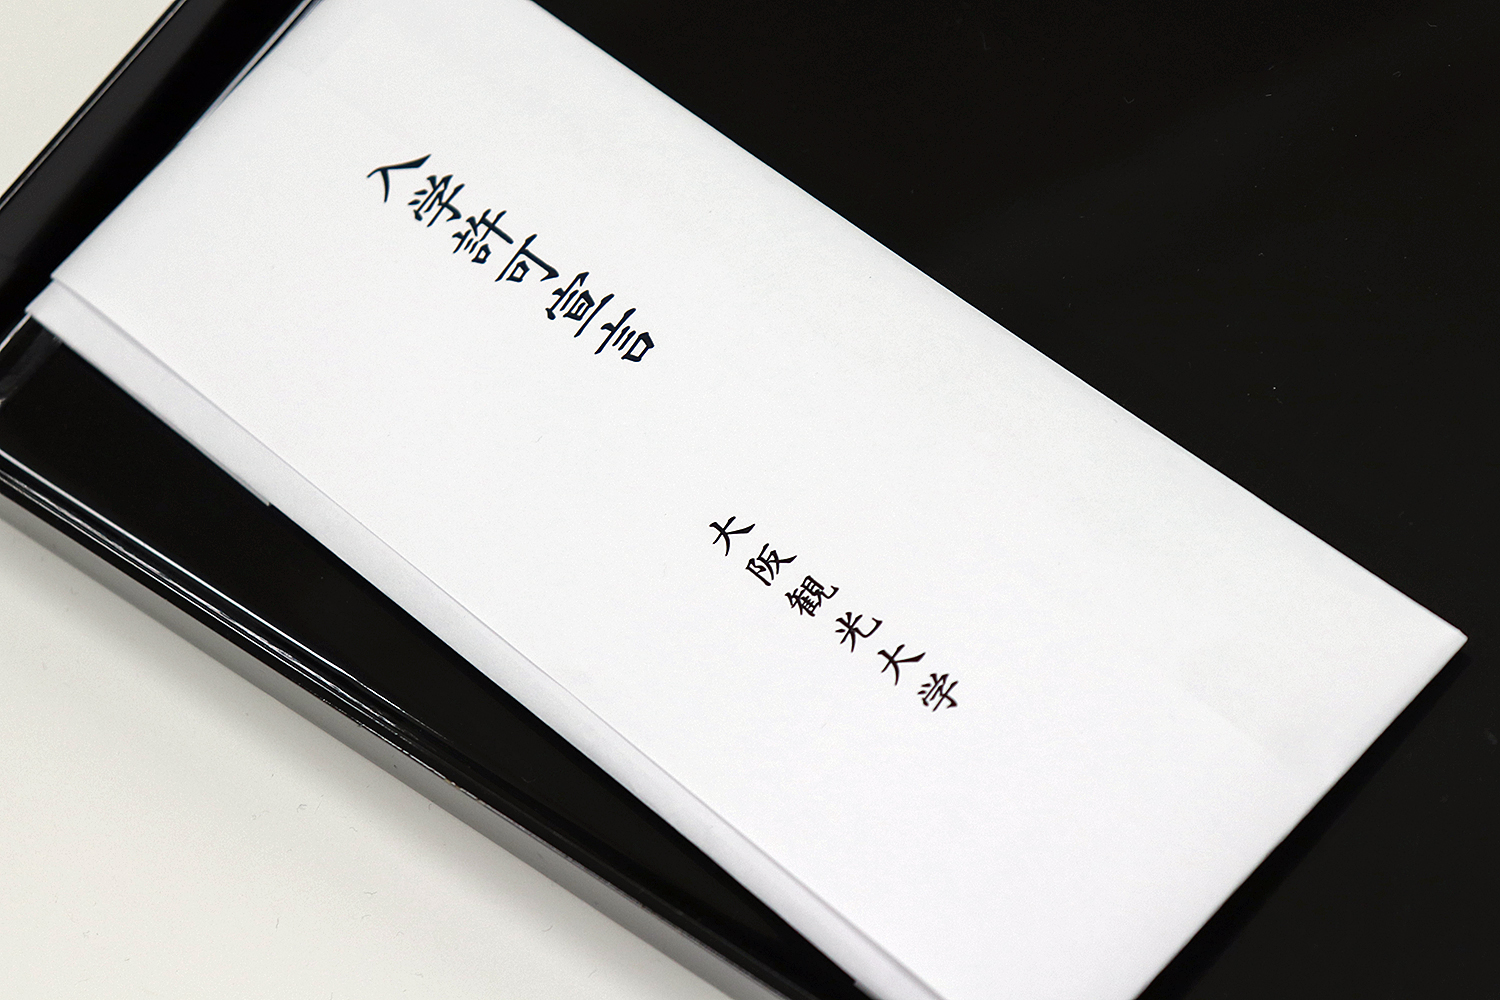 入学許可宣言
大阪観光大学